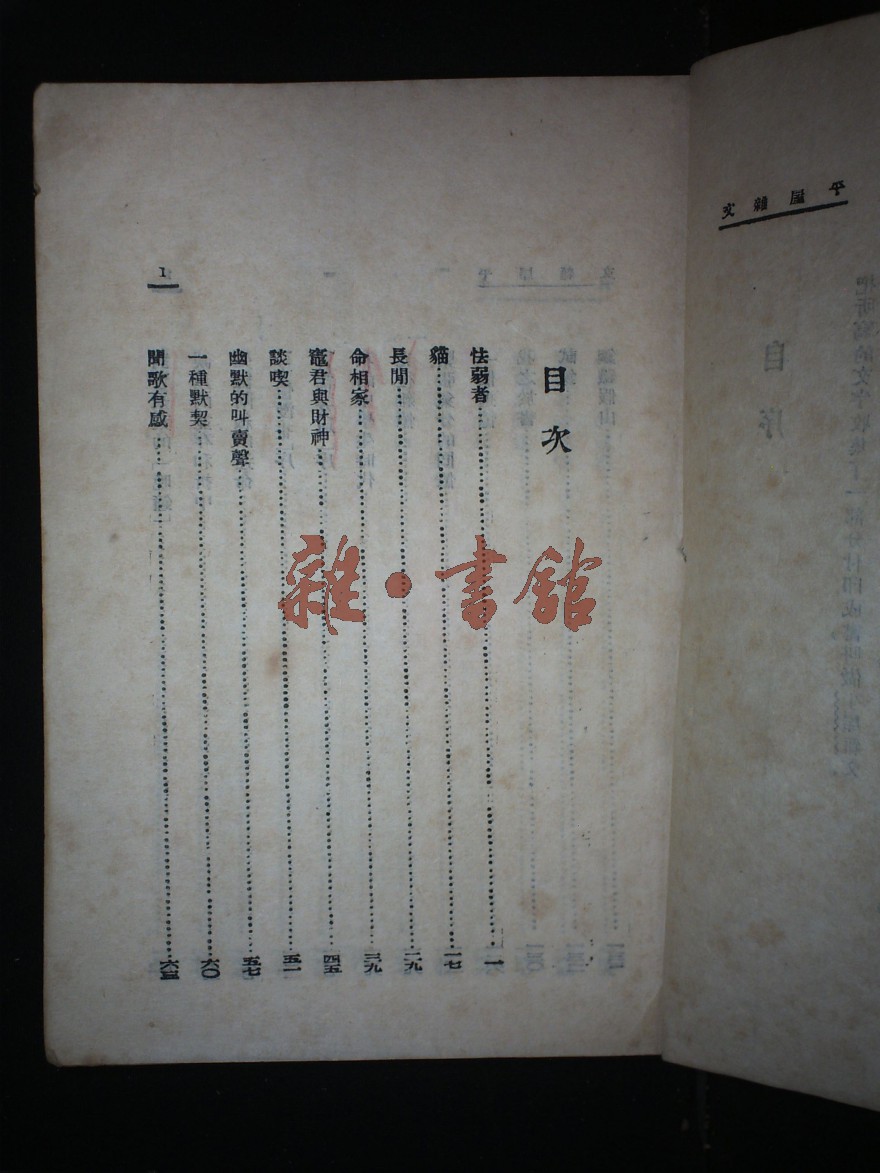 平屋雜文
自序
目次
怯弱者⋯⋯一
貓⋯⋯一七
長閒⋯⋯二九
命相家⋯⋯三九
竈君與財神⋯⋯四五
談喫⋯⋯五一
幽默的叫賣聲⋯⋯五七
一種默契⋯⋯六〇
聞歌有感⋯⋯六三
1
雜·書館